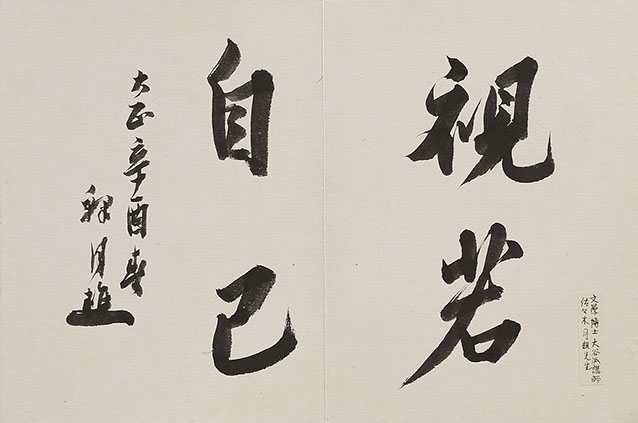 文學博士大谷派講師
佐々木月樵先生
視若
自己
大正辛酉春
釋月樵